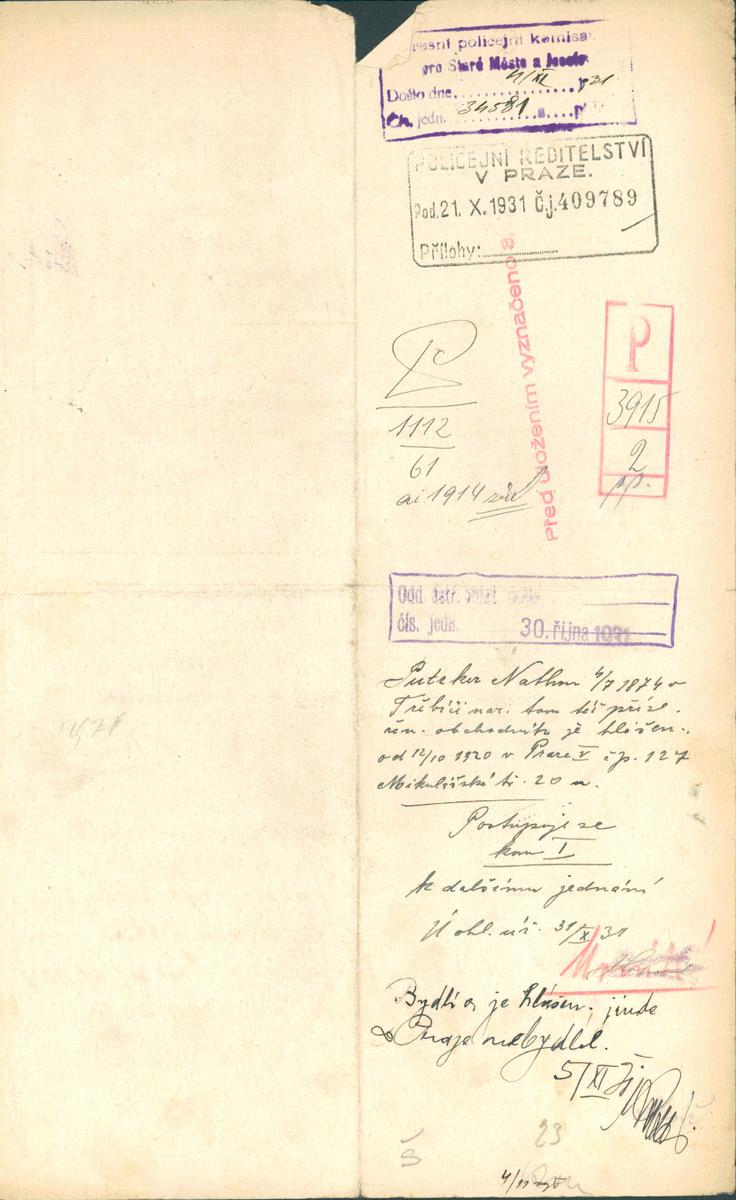 policejní komisa
pro Staré Město a Josefov
Došlo dne 4/XI 931
Čís. jedn. 34581
POLICEJNÍ ŘEDITELSTVÍ
V PRAZE.
Pod. 21. X. 1931 Č.j. 409789
Přílohy:
Před uložením vyznačeno
P
3915
2
pp.
1112
61
ai 1914
Odd.
čís. jedn. 30. října 1931
Putzker Nathan 4/7 1874 v
Třebíči nar. tam též přísl.
žen. obchodník je hlášen
od 12/10 1920 v Praze V čp. 127
Mikulášská tř. 20 n.
Postupuje se
kom I
k dalšímu jednání
Úohl. úř. 31/X 31
Bydlí a je hlášen, jinde
v Praze nebydlel.
5/XI 31
23
Š
4/11